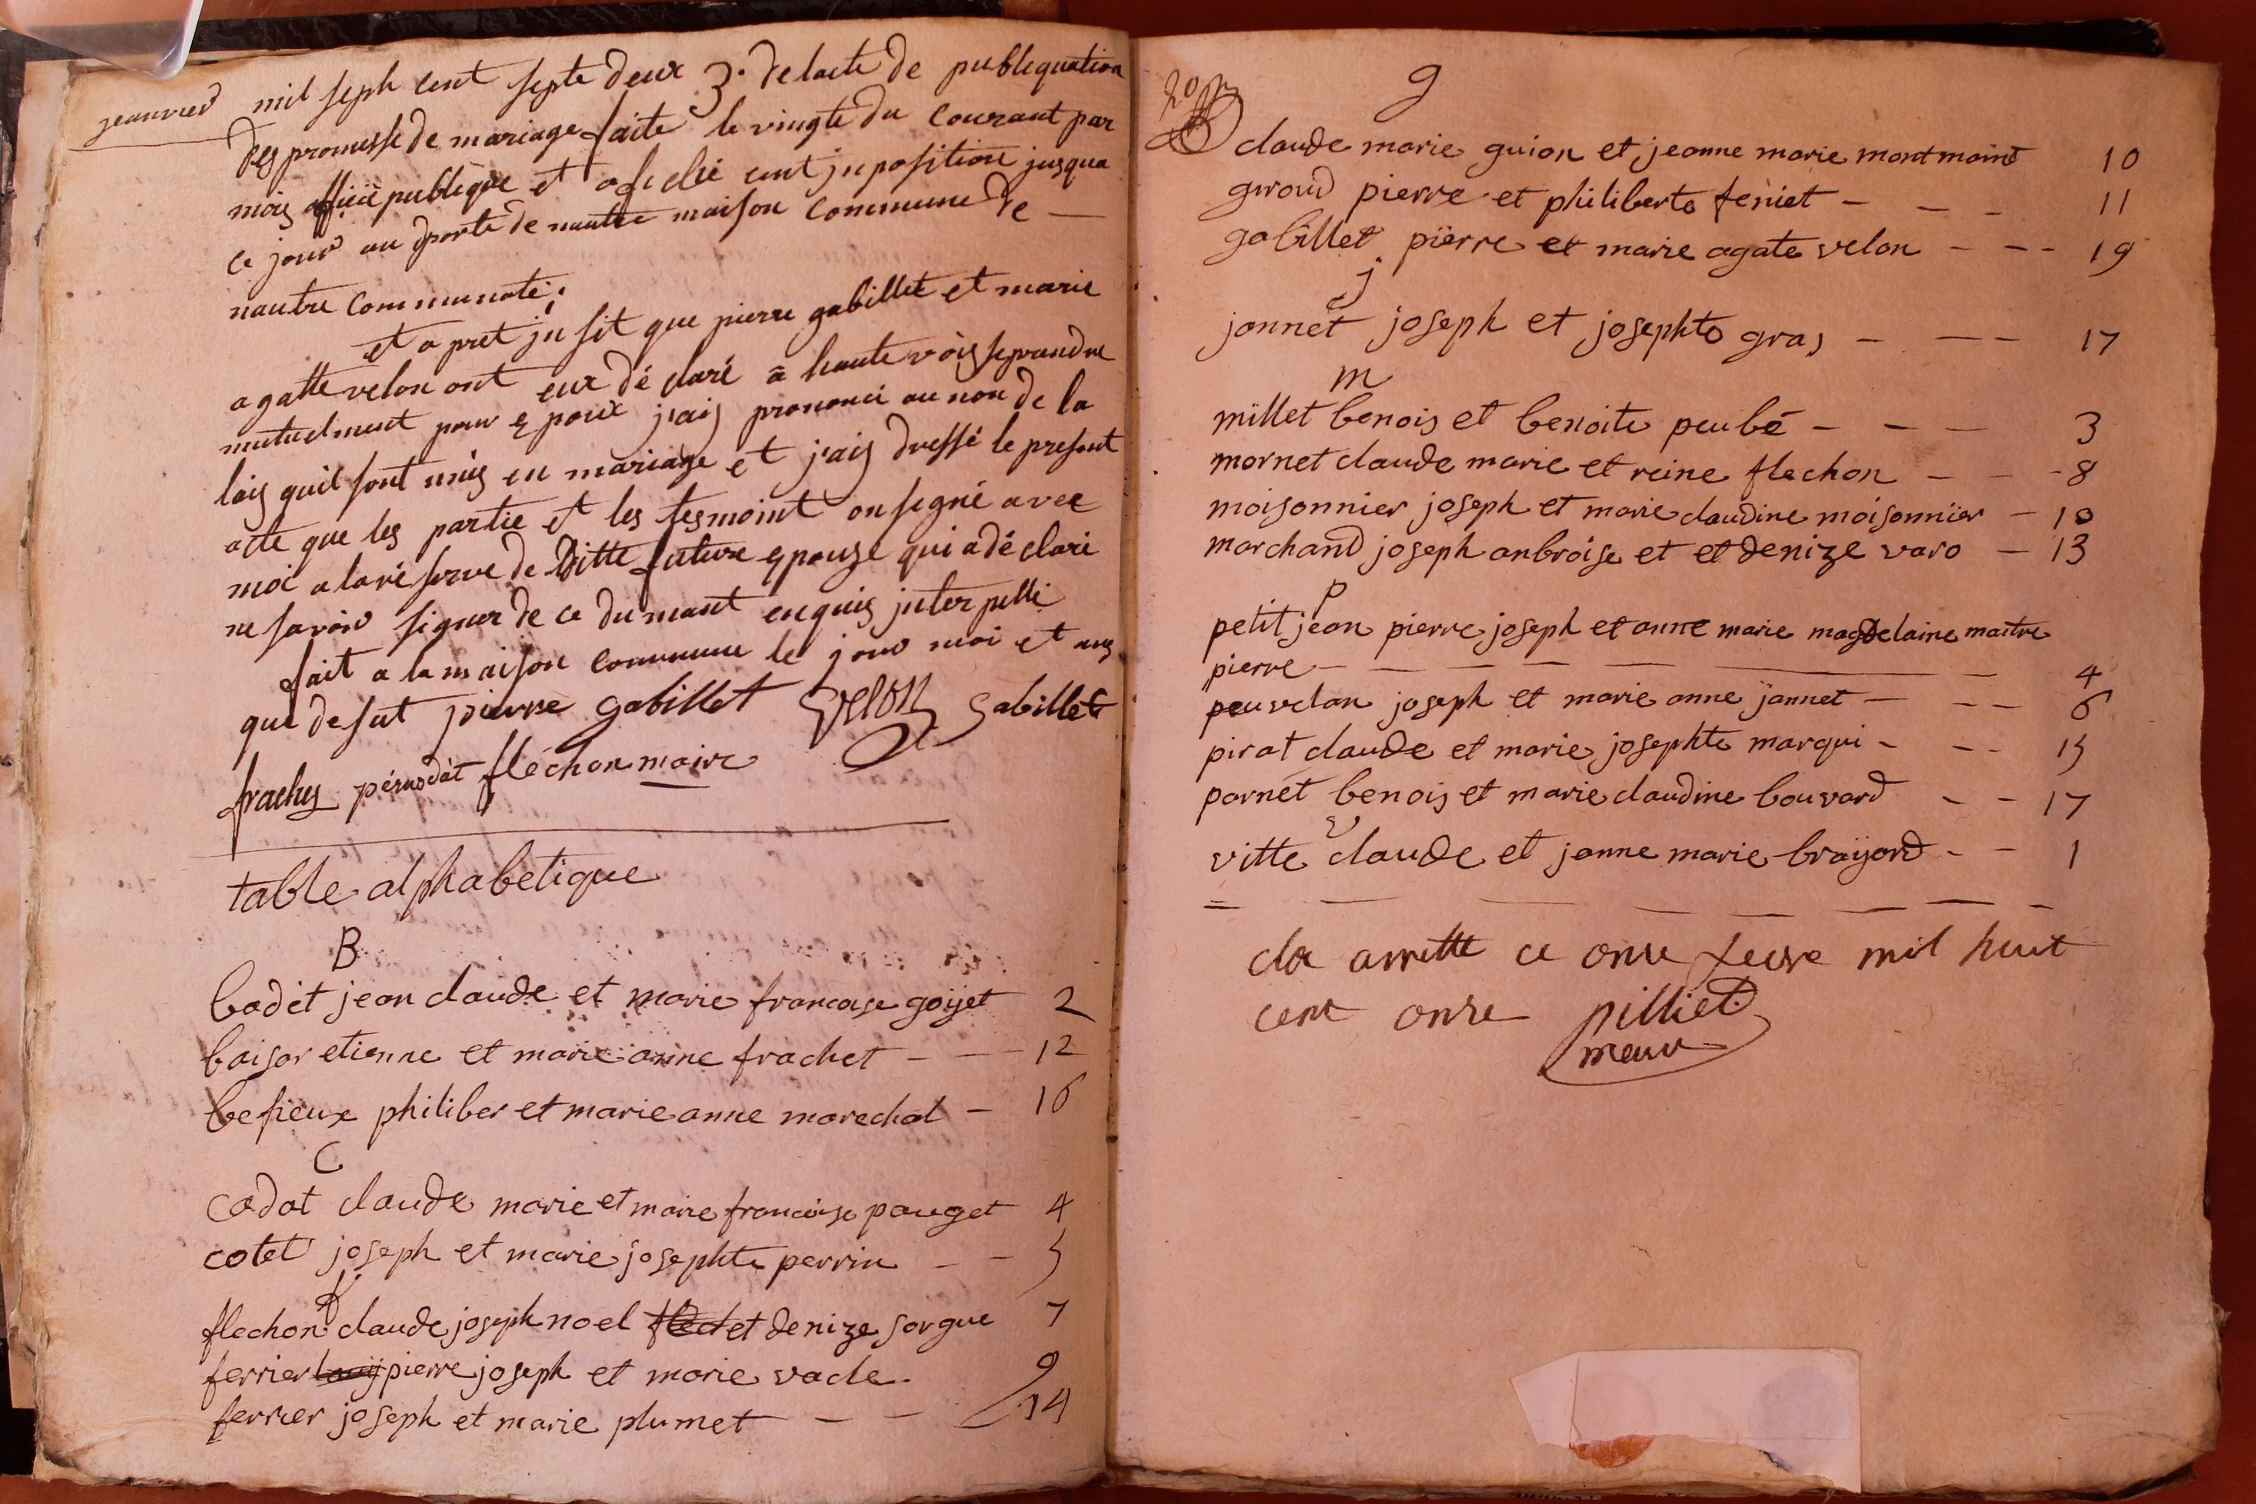 jeanvied mil seph cent septe deux 3. de lacte de publiquation
des promesse de mariage faite le vingte du courant par
mois officié publeque et afichié cent jn position jusqua
ce jour au dporte de nautre maison commune de —
nautre communoté:
et apret ju sit que pierre gabillet et marie
agatte velon ont eux dé claré a haute vois se prandre
mutuelment pour epoux j'ais prononcé au non de la
lois quil sont unis en mariage et j'ais dressé le present
acte que les partie et les tesmoint on segné avec
moi a la ré serve de ditte future epouze qui a dé claré
ne savoir signer de ce dumant enquis jnterpellé
fait a la maison commune le jour moi et ans
que desut pierre gabillet velon gabillet
frachet pérnodat fléchon maire
table alphabetique
B
badet jean claude et marie francoise goÿet 2
baisor etienne et marie anne frachet — — — 12
befieux philiber et marie anne marechal — 16
C
cadot claude marie et marie francoise pouget 4
cotet joseph et marie josephte perrin — — 5
f
flechon claude joseph noel flech et denize sorgue 7
ferrier louij pierre joseph et marie vacle. 9
ferrier joseph et marie plumet — — 14
20
g
claude marie guion et jeanne marie montmaint 10
giroud pierre et philiberte feniet — — — 11
gabillet pierre et marie agate velon — — — 19
j
jannet joseph et josephte gras — — — 17
m
millet benois et benoite peubé — — — 3
mornet claude marie et reine flechon — — - 8
moisonnier joseph et marie claudine moisonnier — 10
marchand joseph anbroise et et denize varo — 13
p
petit jean pierre joseph et anne marie magdelaine maitre
pierre — — — — — — 4
peuvelan joseph et marie anne jannet — — — 6
pirat claude et marie josephte marqui - — - 15
parnet benois et marie claudine bouvard - — 17
v
vitte claude et janne marie braÿard - — 1
clo arrette ce onze fevre mil huit
cent onze pilliet
meire